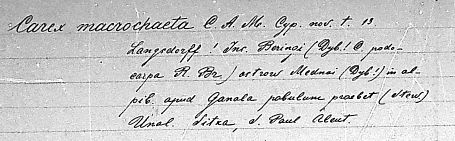 Carex macrochaeta C. A. M. Cyp. nov. t. 13
Langsdorff! Ins. Beringi (Dyb.! C. podo-
carpa R. Br.) ostrow Mednoi (Dyb.!) in al-
pib. apud Ganala pabulum praebet (Stew)
Unal. Sitka, S. Paul Aleut